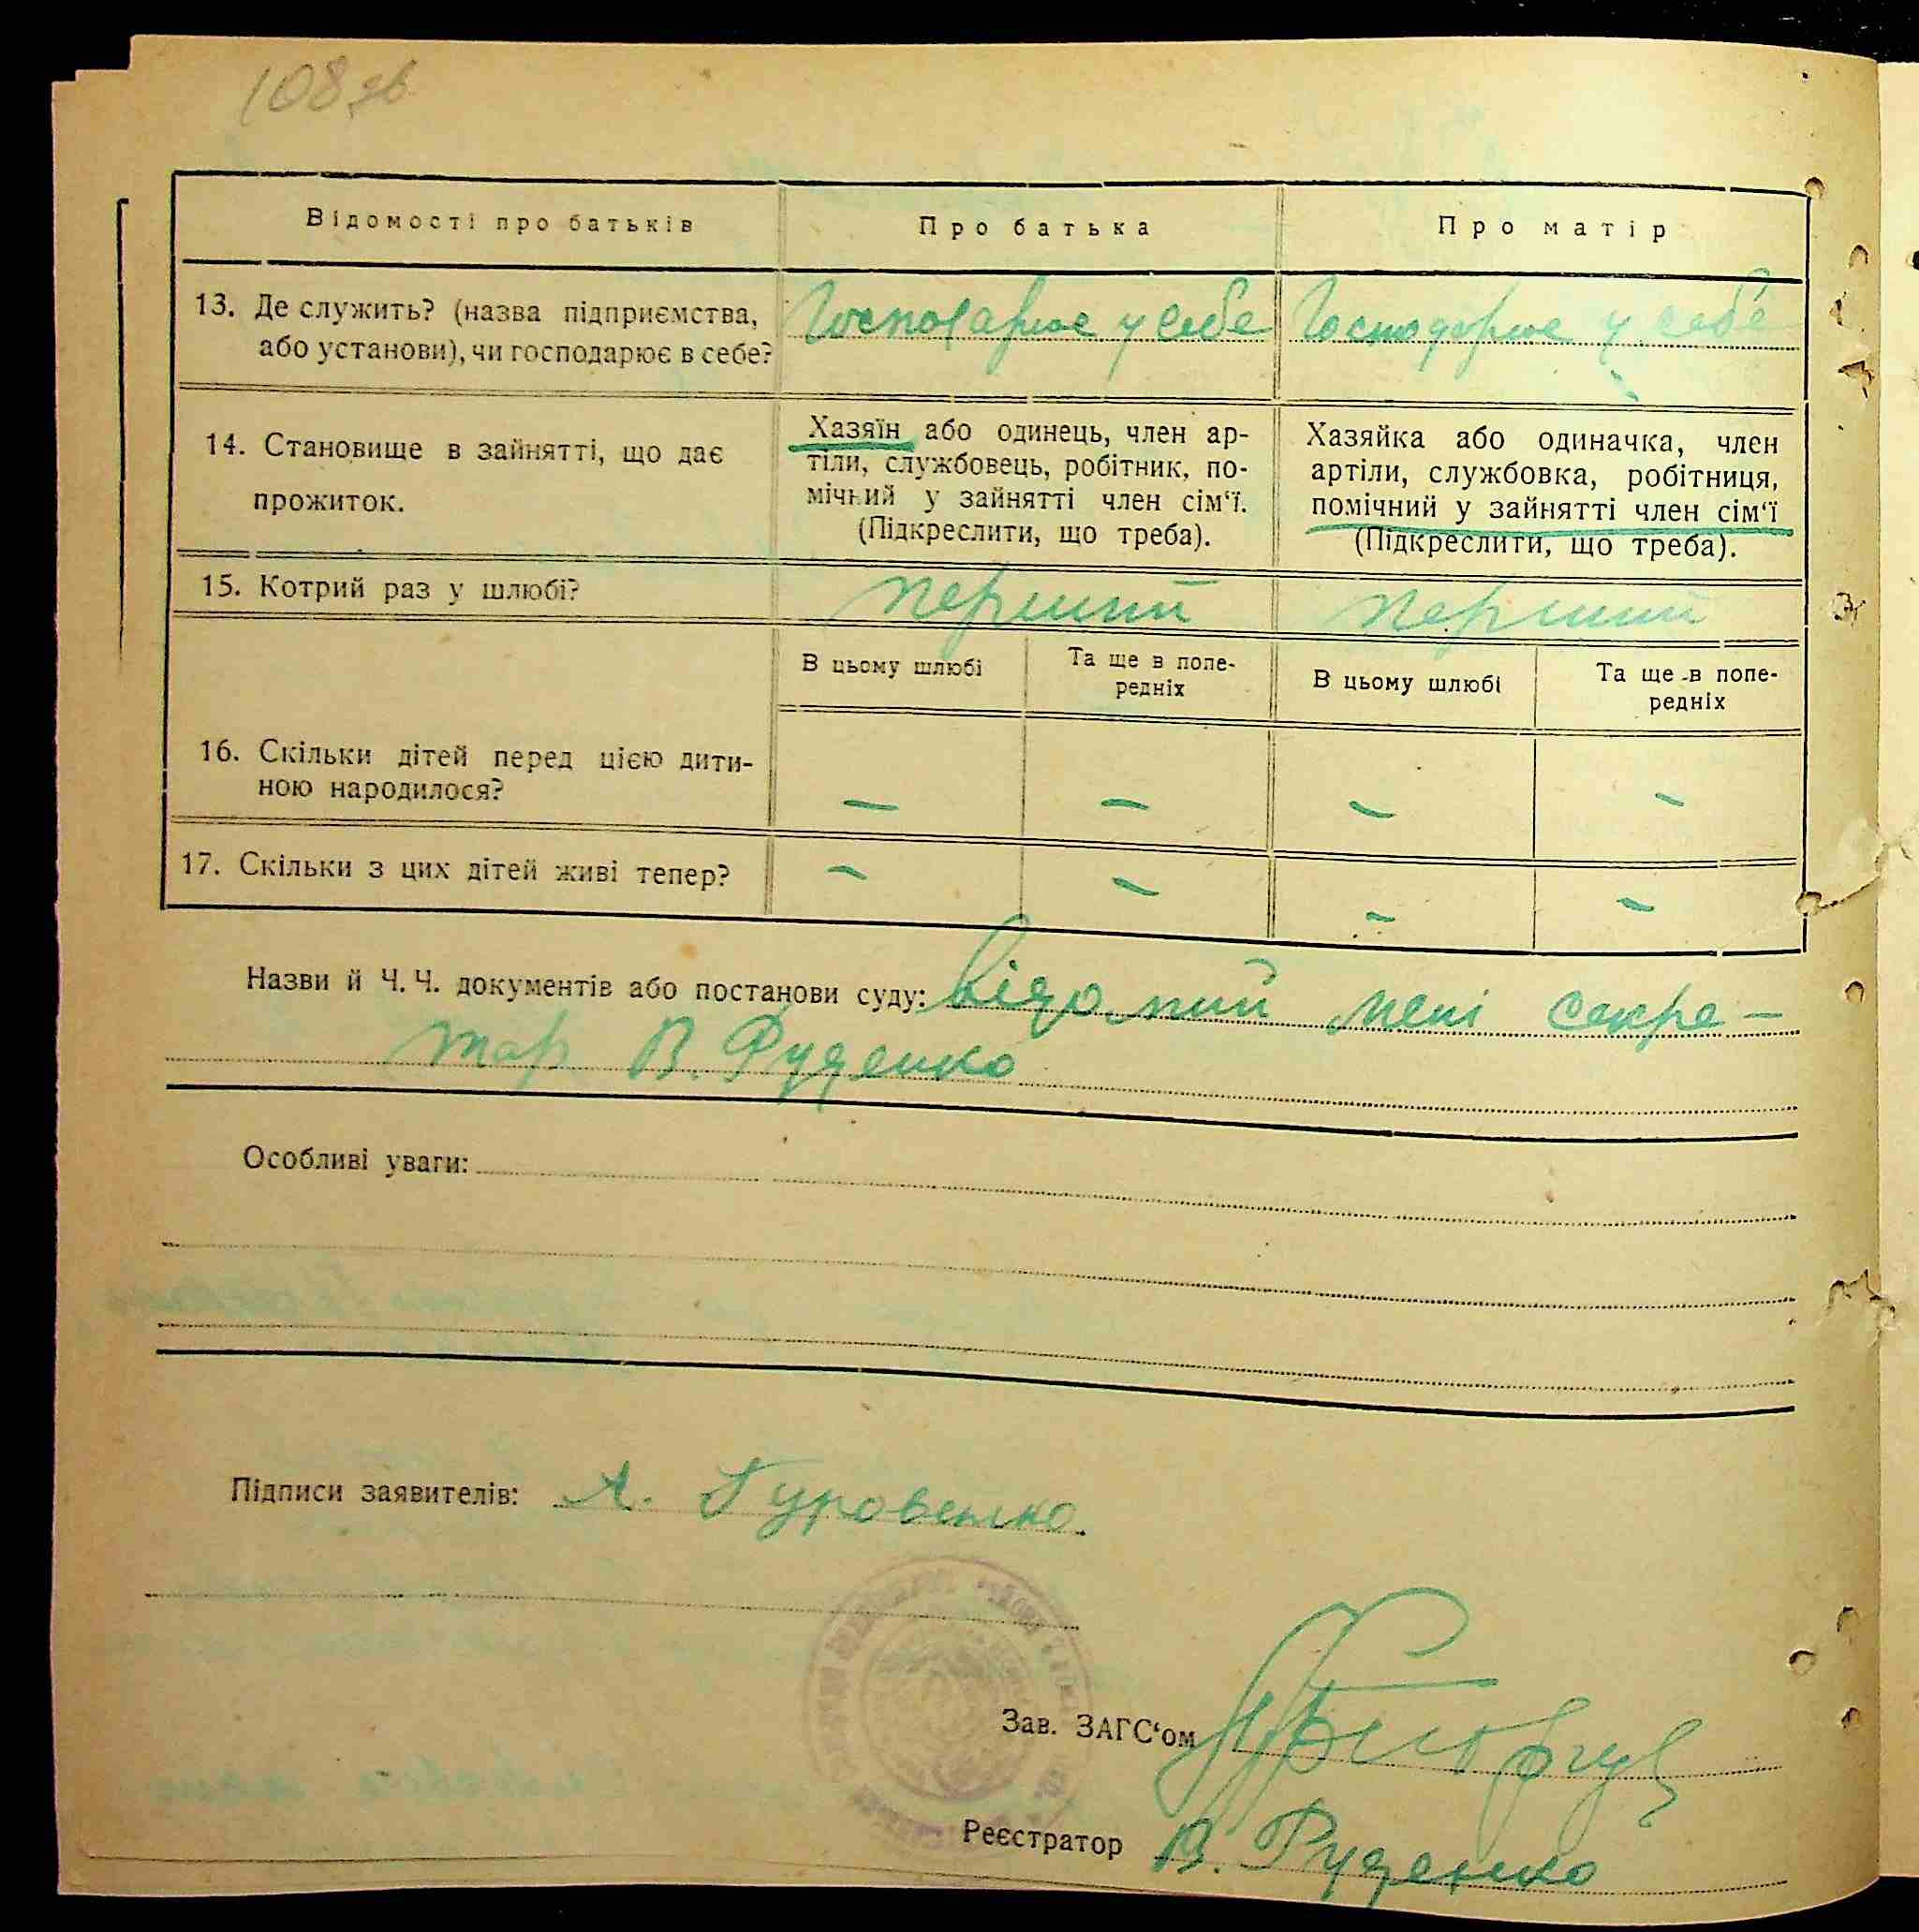 108 зв
Відомості про батьків
Про батька
Про матір
13. Де служить? (назва підприємства,
або установи), чи господарює в себе?
Господарює у себе
Господарює у себе
14. Становище в зайнятті, що дає
прожиток.
Хазяїн або одинець, член ар-
тіли, службовець, робітник, по-
мічний у зайнятті член сім‘ї.
(Підкреслити, що треба).
Хазяйка або одиначка, член
артіли, службовка, робітниця,
помічний у зайнятті член сім‘ї
(Підкреслити, що треба).
15. Котрий раз у шлюбі?
перший
перший
В цьому шлюбі
Та ще в попе-
редніх
В цьому шлюбі
Та ще в попе-
редніх
16. Скільки дітей перед цією дити-
ною народилося?
— — — —
17. Скільки з цих дітей живі тепер?
— — — —
Назви й Ч. Ч. документів або постанови суду: відомий мені секре-
тар В. Руденко
Особливі уваги:
Підписи заявителів: А. Гуровенко
Зав. ЗАГС‘ом
Реєстратор В. Руденко